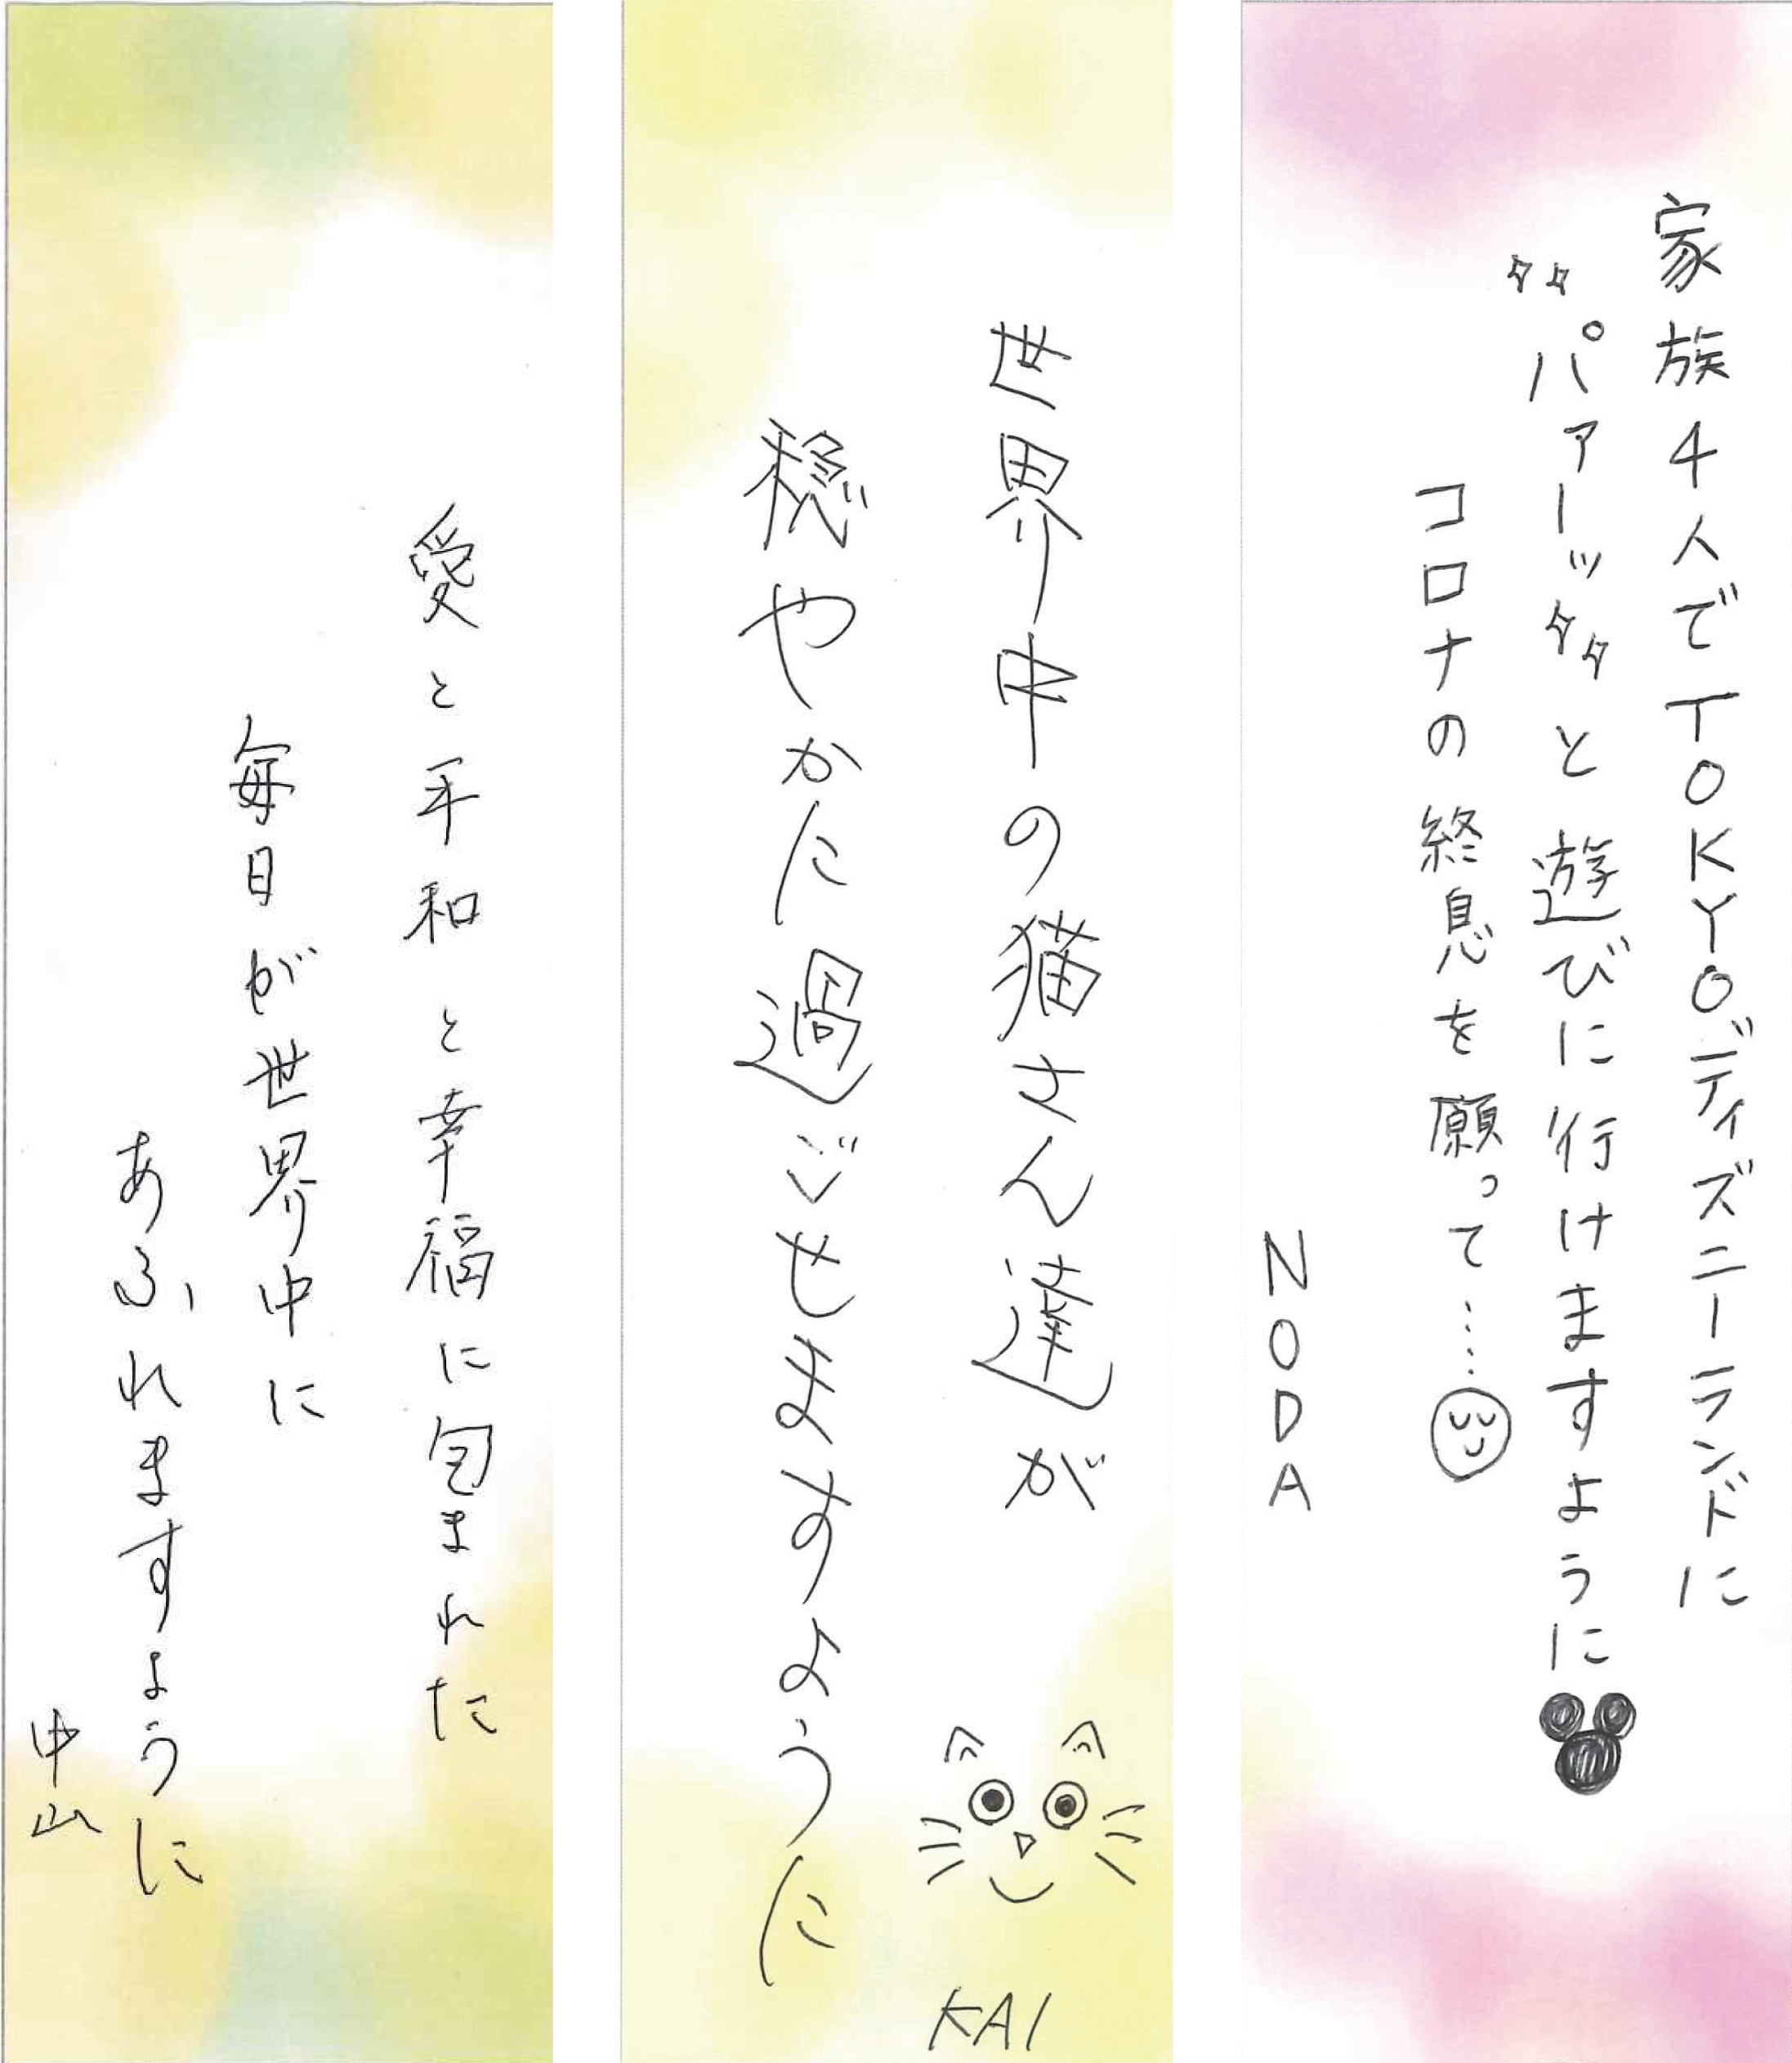 家族4人でTOKYOディズニーランドに
〝パァーッ〟と遊びに行けますように
コロナの終息を願って……
NODA
世界中の猫さん達が
穏やかに過ごせますように
KAI
愛と平和と幸福に包まれた
毎日が世界中に
あふれますように
中山